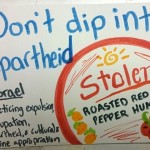 Don't dip into
partheid
Israel
cticing expulsion
upation,
artheid, & cultural &
isine appropriation
Stolen
ROASTED RED
PEPPER HUM